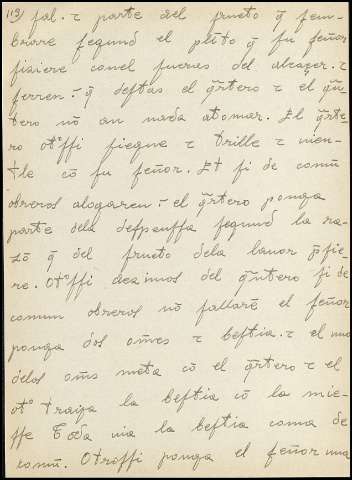 119) fal. τ parte del frueto q̃ fem-
brare fegund el pleito q̃ fu feñor
fiziere conel fueras del alcaçer. τ
ferren.- q̃ deftas el q̃rtero τ el q̃n-
tero nõ an nada atomar. El q̃rte-
ro otºffi fiegue τ trille τ vien-
tle cõ fu feñor. Et fi de comũ
obreros alogaren.- el q̃rtero ponga
parte dela defpenffa fegund la ra-
zõ q̃ del frueto dela lauor p̃fie-
re. Otºffi dezimos del q̃ntero fi de
comun obreros nõ fallarẽ el feñor
ponga dos om̃es τ beftia. τ el uno
delos om̃s meta cõ el q̃rtero τ el
otº traiga la beftia cõ la mie-
ffe Toda uia la beftia coma de
comũ. Otroffi ponga el feñor una